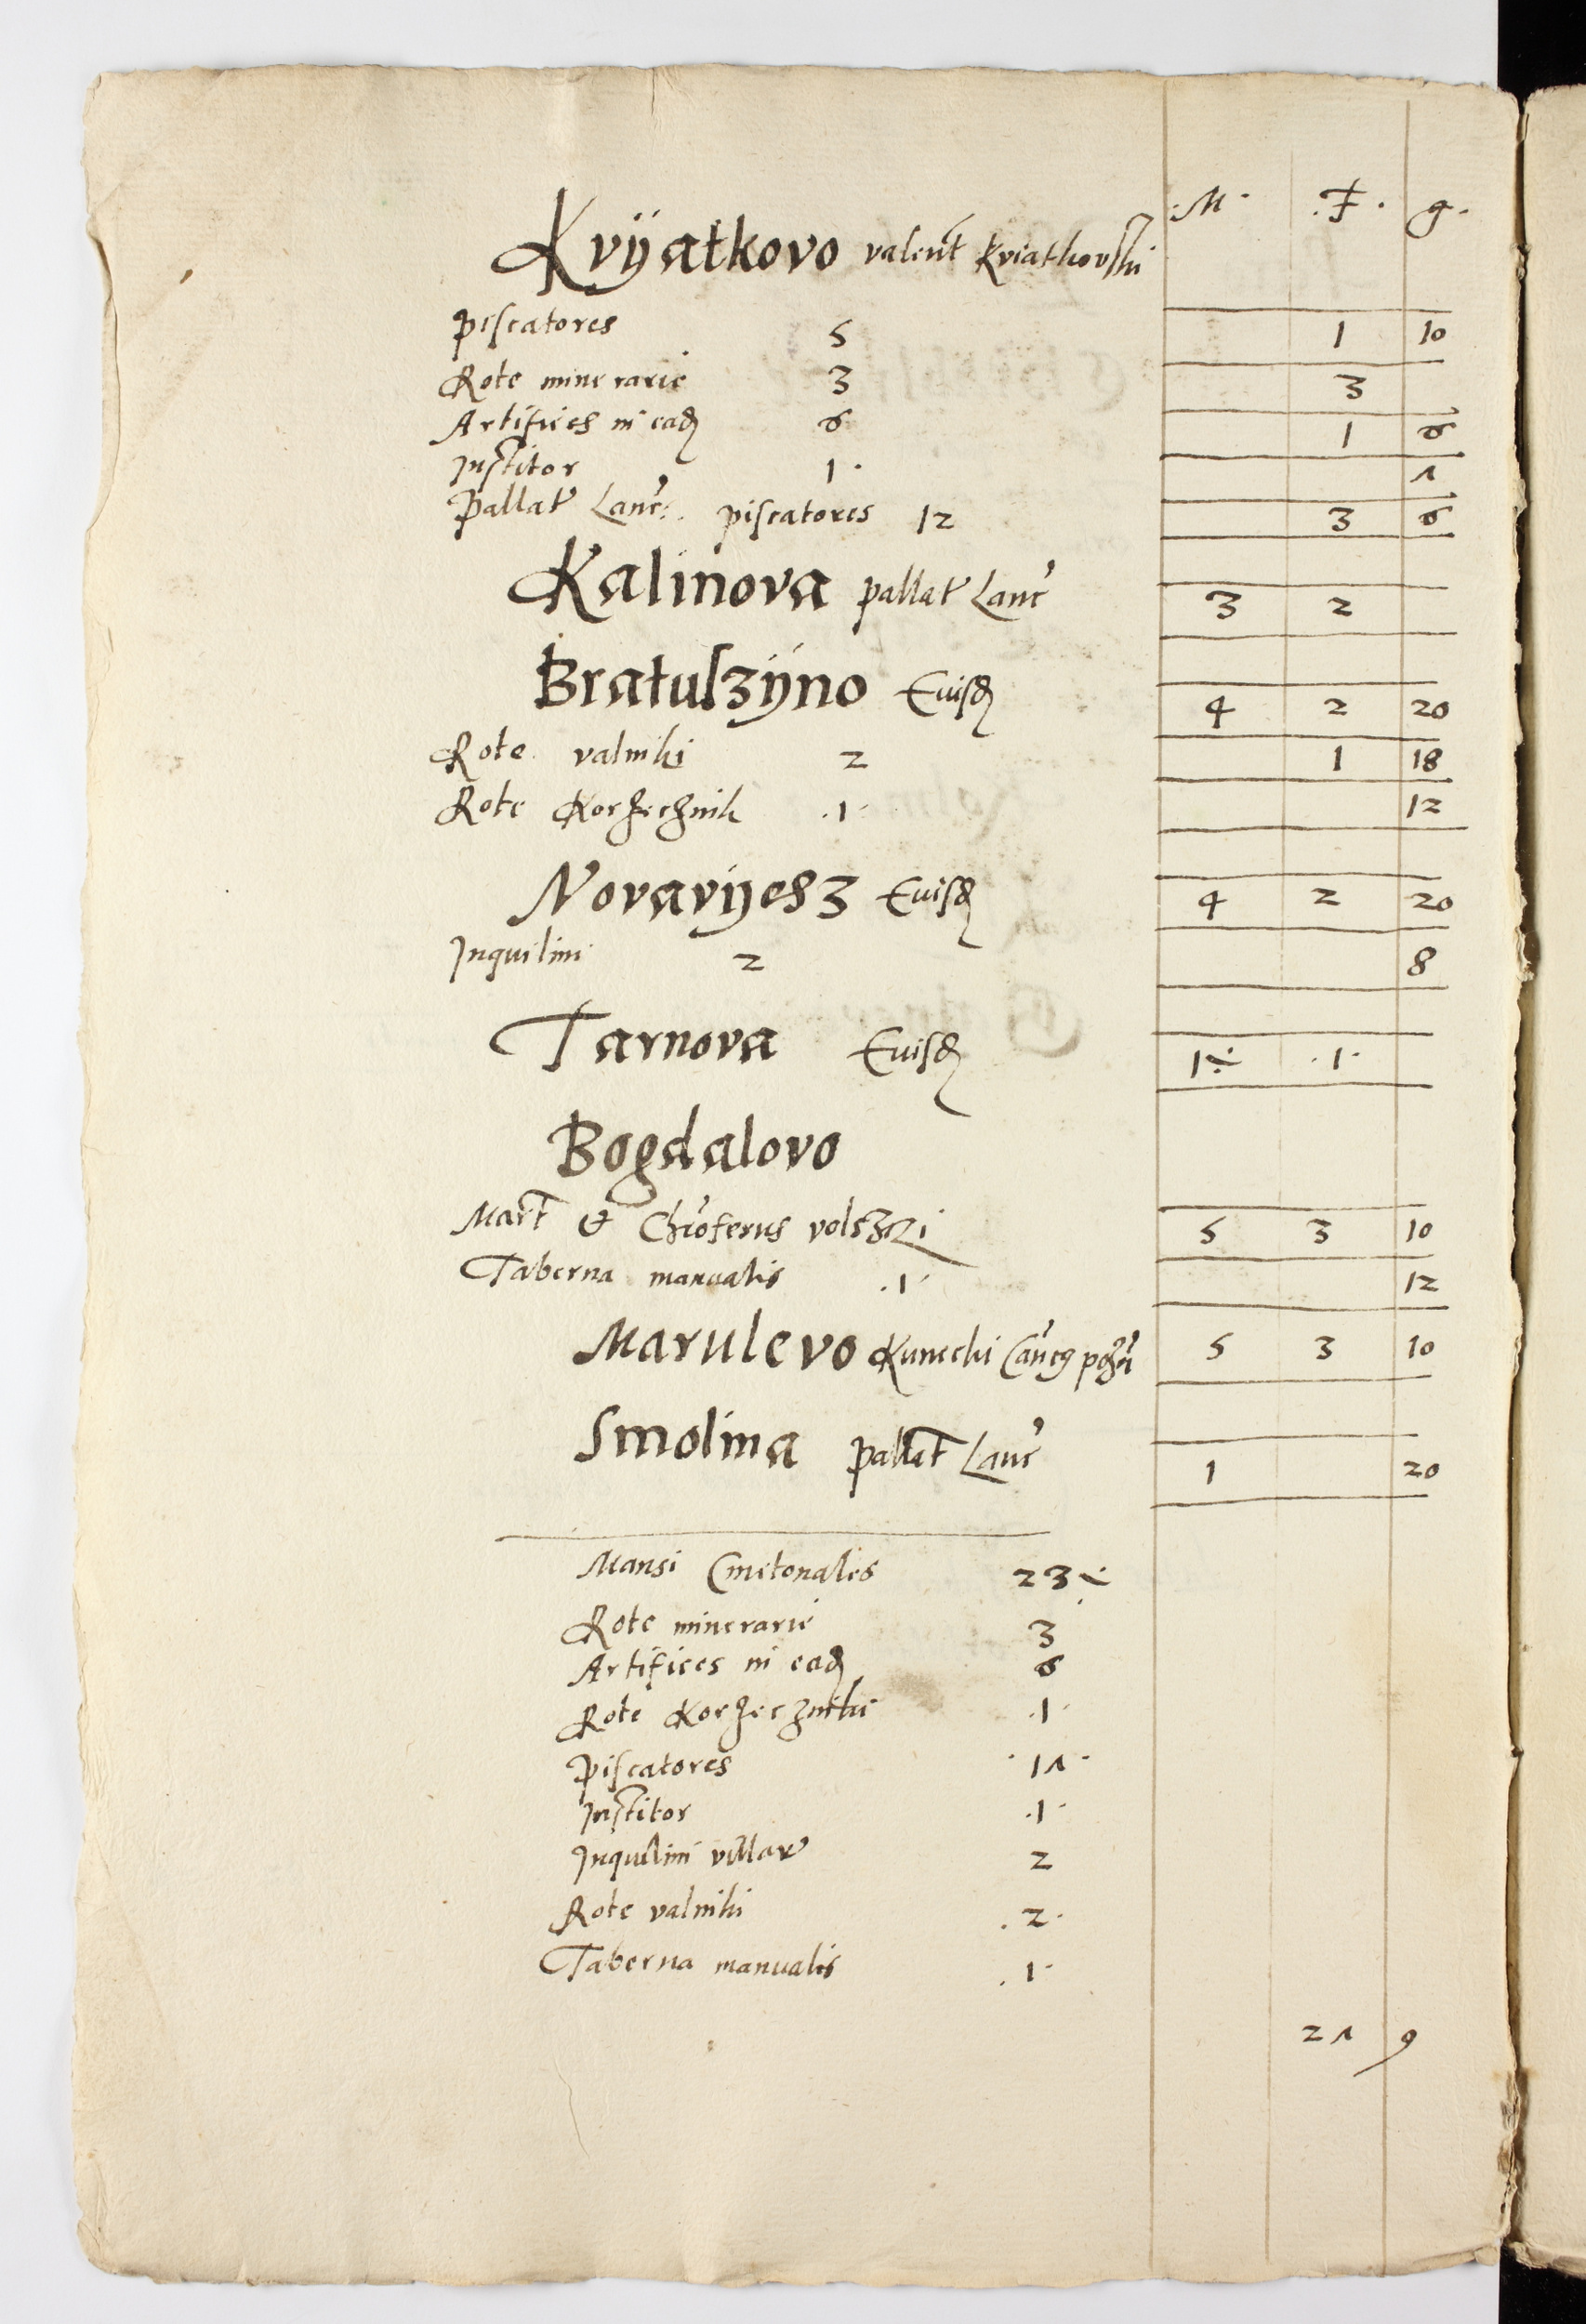 .M. .F. g.
Kvÿatkovo valent Kviatkovski
Piscatores 5 1 10
Rote minerarie 3 3
Artifices in ead 6 1 6
Institor 1. 7
Pallat Lanc: piscatores 12 3 6
Kalinova pallat Lanc 3 2
Bratuszÿno Euisd 4 2 20
Rote valniki 2 1 18
Rote Korzecznik .1. 12
Novavÿesz Euisd 4 2 20
Inquilini 2 8
Tarnova Euisd 1÷ .1.
Bogdalovo
Mart et Chrõferus 5 3 10
Taberna manualis .1. 12
Marulevo 5 3 10
Smolina pallat Lanc 1 20
Mansi Cmetonales 23÷
Rote minerarie 3
Artifices in ead 6
Rote Korzecznikie .1.
Piscatores .17.
Institor .1.
Inquilini villar 2
Rote valniki .2.
Taberna manualis .1.
27 9